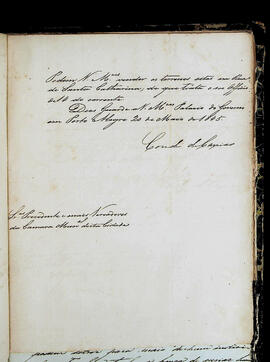 Podem V. M.ces vender os terrenos sitos na Rua
de Santa Catharina, de que trata o seu Officio
de 16 do corrente.
Deus Guarde a V. M.ces Palacio do Governo
em Porto Alegre 20 de Maio de 1845.
Conde de Caxias
S.res Presidente e mais Vereadores
da Camara Mun.al desta Cidade
para